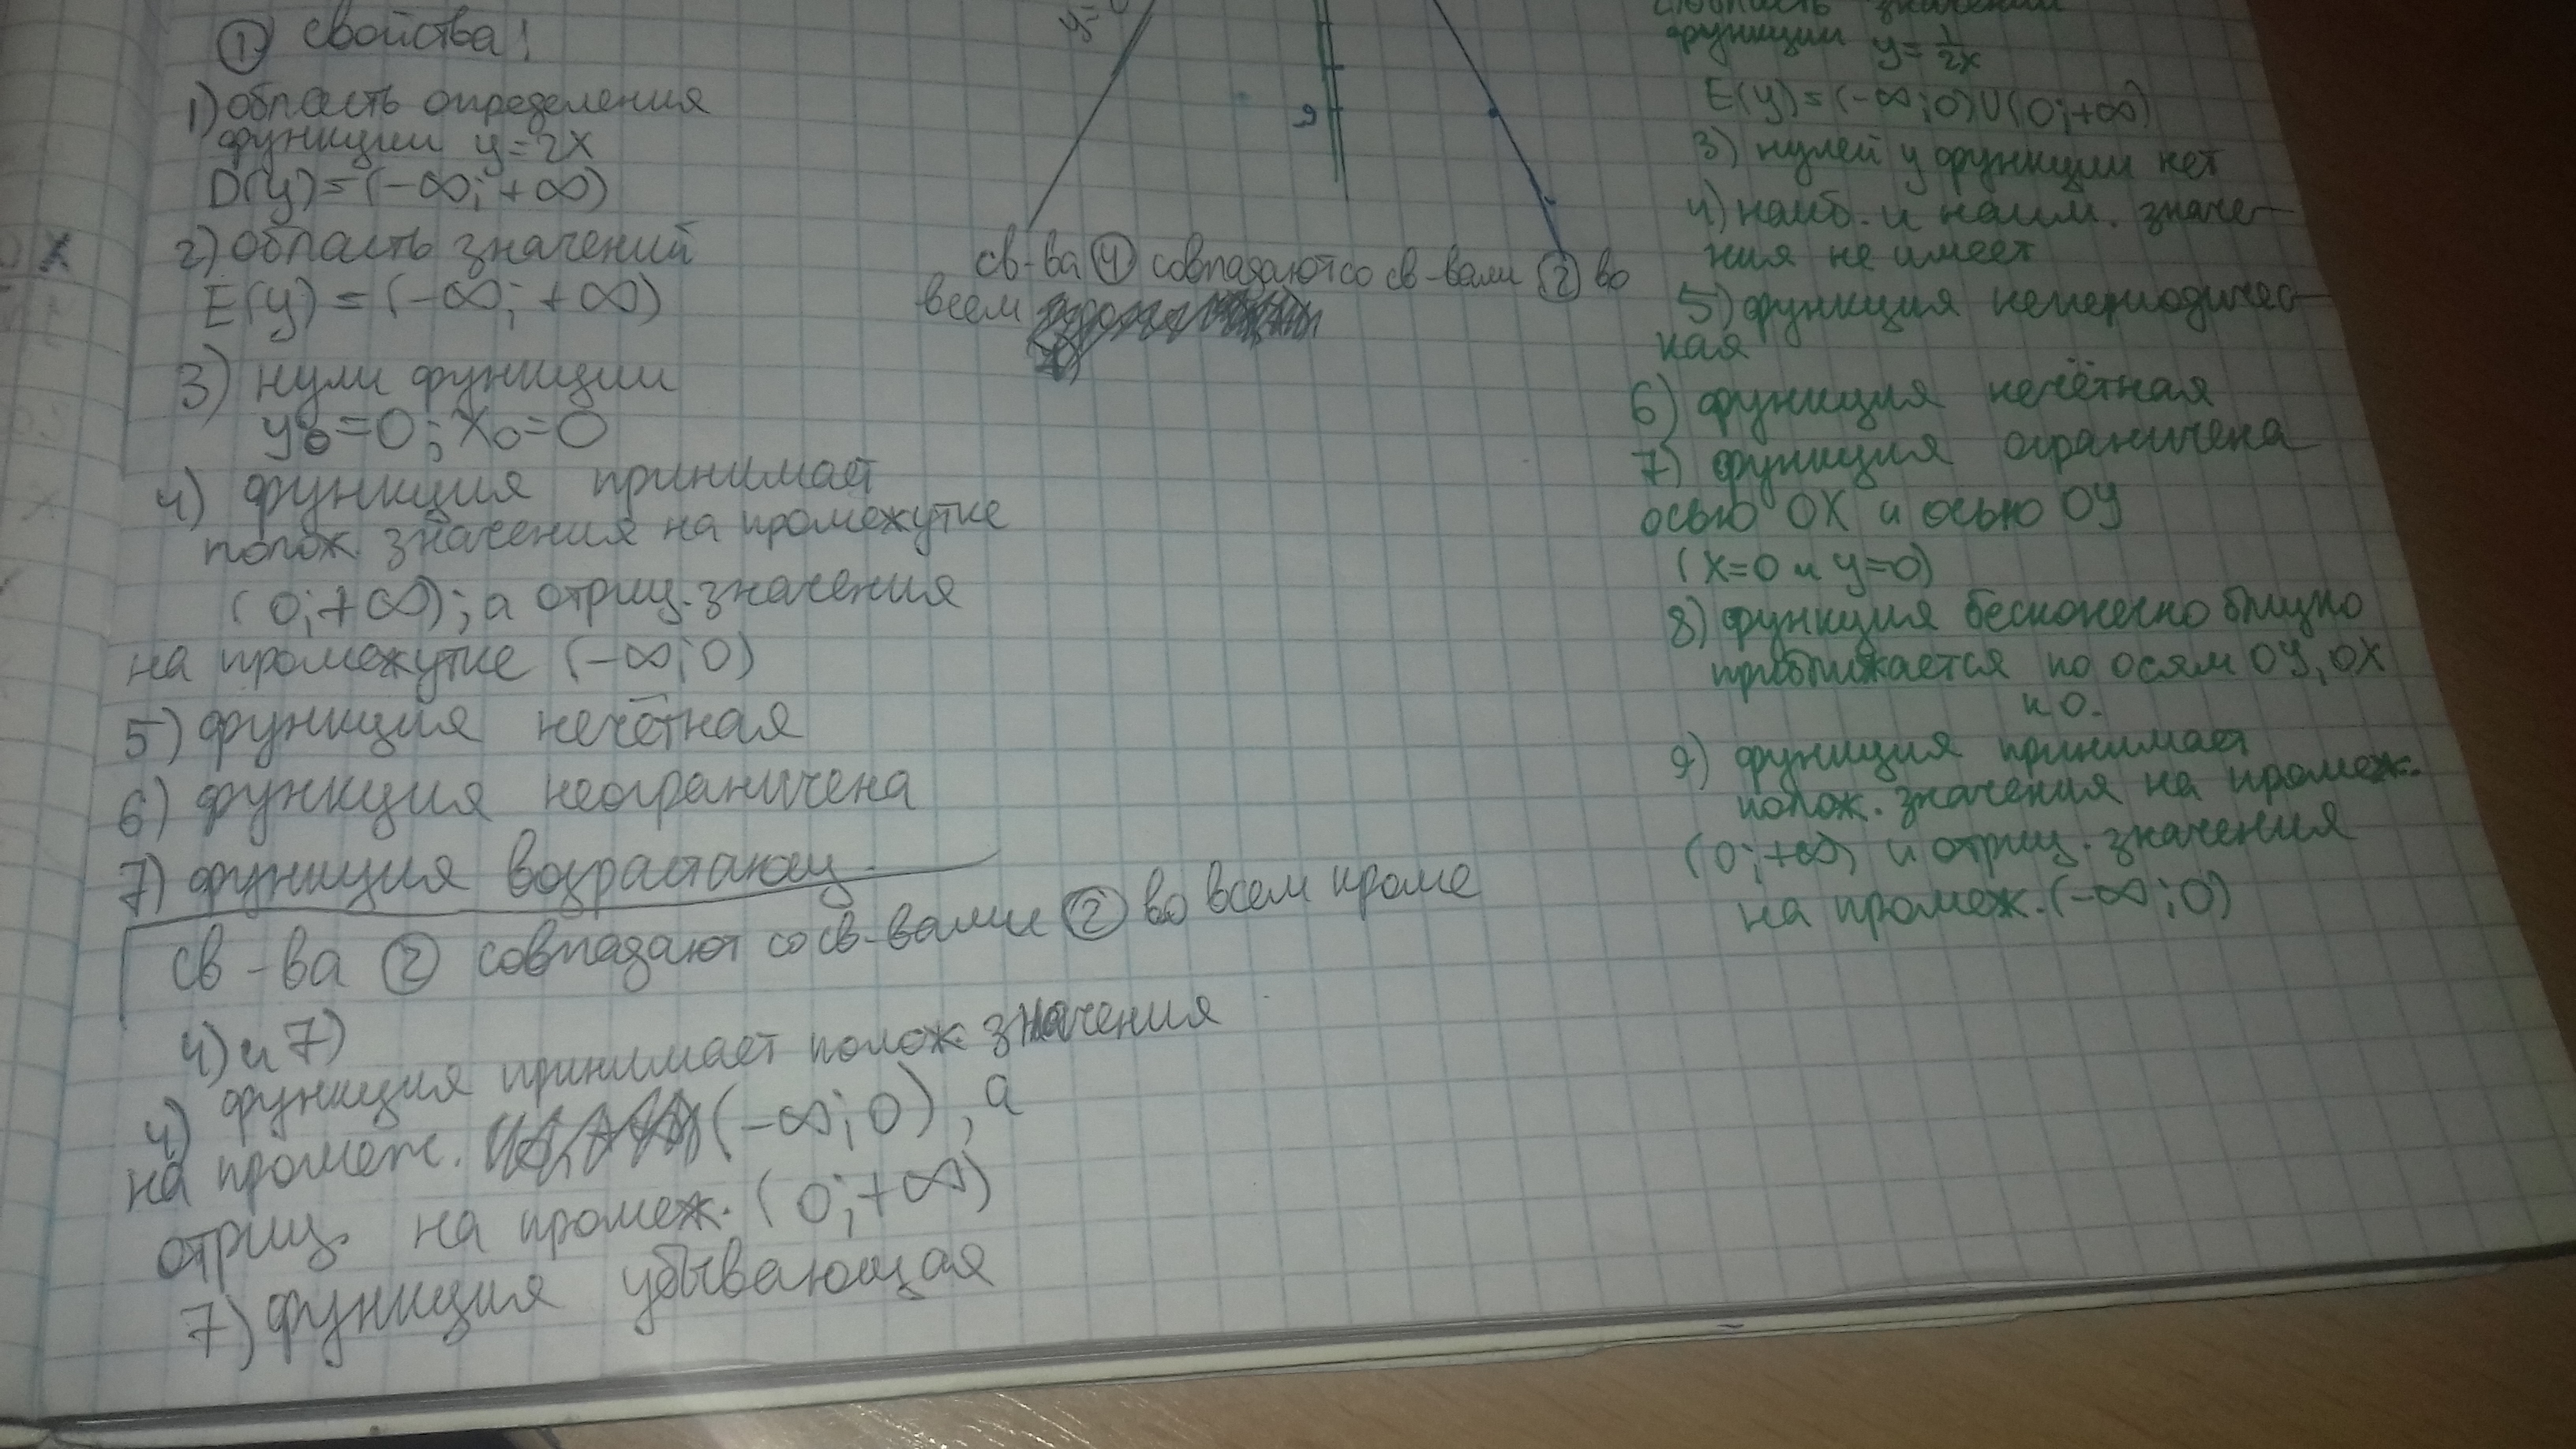 ① свойства:
1) область определения
функции y=2x
D(y)=(-∞;+∞)
2) область значений
E(y)=(-∞;+∞)
3) нули функции
y₀=0; x₀=0
4) функция принимает
полож. значения на промежутке
(0;+∞); а отриц. значения
на промежутке (-∞;0)
5) функция нечётная
6) функция неограничена
7) функция возрастающ.
св-ва ② совпадают со св-вами ② во всем кроме
4) и 7)
4) функция принимает полож. значения
на промеж. (-∞;0), а
отриц. на промеж. (0;+∞)
7) функция убывающая
y=
9
св-ва ④ совпадают со св-вами ② во
всем
область значений
функции y=1/2x
E(y)=(-∞;0)U(0;+∞)
3) нулей у функции нет
4) наиб. и наим. значе-
ния не имеет
5) функция непериодичес-
кая
6) функция нечётная
7) функция ограничена
осью OX и осью OY
(x=0 и y=0)
8) функция бесконечно близко
приближается по осям OY, OX
к 0.
9) функция принимает
полож. значения на промеж.
(0;+∞) и отриц. значения
на промеж. (-∞;0)